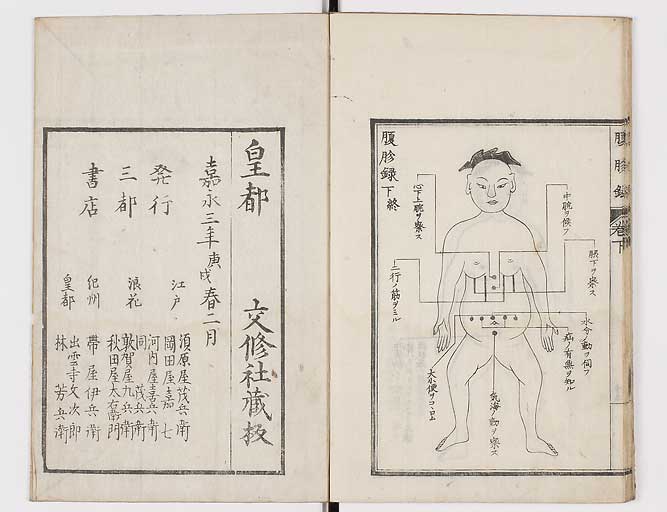 腹胗録
巻下
中脘ヲ候フ
脇下ヲ察ス
水分ノ動ヲ伺フ
病ノ有無ヲ知ル
気海ノ動ヲ察ス
大小便ヲココロム
二行ノ筋ヲミル
心下上脘ヲ察ス
腹胗録下終
皇都 文修社蔵板
嘉永三年庚戌春二月
発行
三都
書店
江戸
須原屋茂兵衛
岡田屋嘉七
浪花
河内屋喜兵衛
同 茂兵衛
敦賀屋九兵衛
秋田屋太右衛門
紀州
帯屋伊兵衛
皇都
出雲寺文次郎
林 芳兵衛